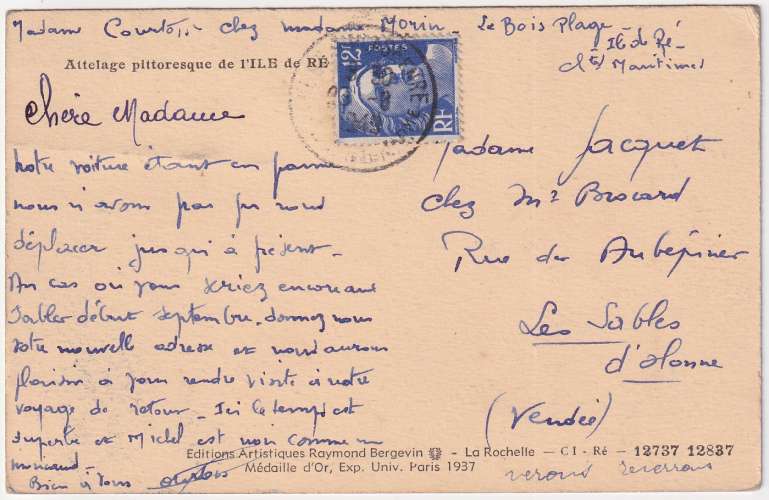 Madame Courtois chez madame Morin - Le Bois Plage -
Ile de Ré -
Ch^tes Maritimes
Attelage pittoresque de l'ILE de RÉ
POSTES
12F
RF
chère Madame
notre voiture étant en panne
nous n'avons pas pu nous
déplacer jusqu'à présent -
Au cas où vous seriez encore aux
Sables début septembre, donnez nous
votre nouvelle adresse et nous aurons
plaisir à vous rendre visite à notre
voyage de retour - Ici le temps est
superbe et Michel est noir comme un
Bien à vous
Madame Jacquet
chez Mr Brocard
Rue des Aubépines
Les Sables
d'Olonne
(Vendée)
Editions Artistiques Raymond Bergevin - La Rochelle - C I - Ré - 12737 12837
Médaille d'Or, Exp. Univ. Paris 1937